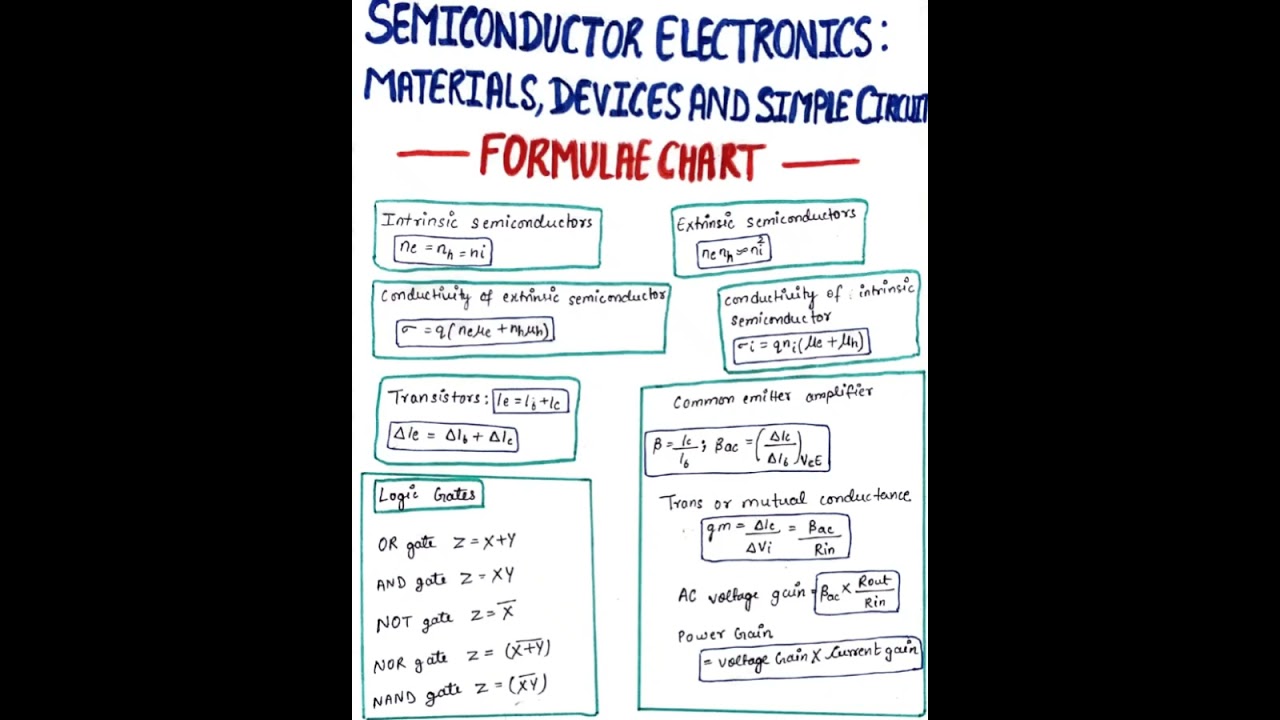 SEMICONDUCTOR ELECTRONICS:
MATERIALS, DEVICES AND SIMPLE CIRCUI
— FORMULAE CHART —
Intrinsic semiconductors
ne = nh = ni
Extrinsic semiconductors
ne nh = ni²
Conductivity of extrinsic semiconductor
σ = q(neμe + nhμh)
Conductivity of intrinsic
semiconductor
σi = qni(μe + μh)
Transistors: Ie = Ib + Ic
ΔIe = ΔIb + ΔIc
Common emitter amplifier
β = Ic/Ib ; βac = (ΔIc/ΔIb)VCE
Trans or mutual conductance
gm = ΔIc/ΔVi = βac/Rin
AC voltage gain = βac × Rout/Rin
Power Gain
= voltage Gain X Current gain
Logic Gates
OR gate Z = X+Y
AND gate Z = XY
NOT gate Z = X̅
NOR gate Z = (X̅+̅Y̅)
NAND gate Z = (X̅Y̅)